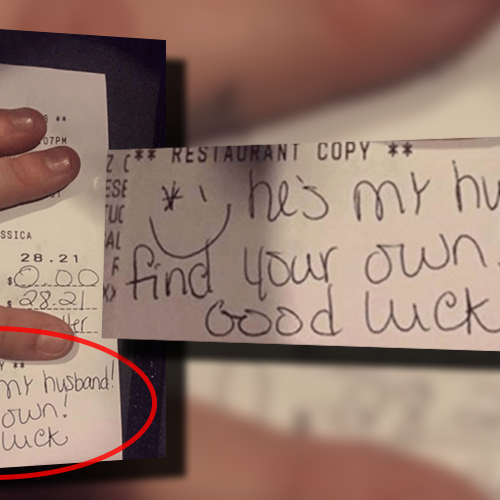 **
07PM
SSICA
28.21
$ 0.00
$ 28.21
**
my husband!
own!
Luck
** RESTAURANT COPY **
he's my hu
find your own.
Good Luck